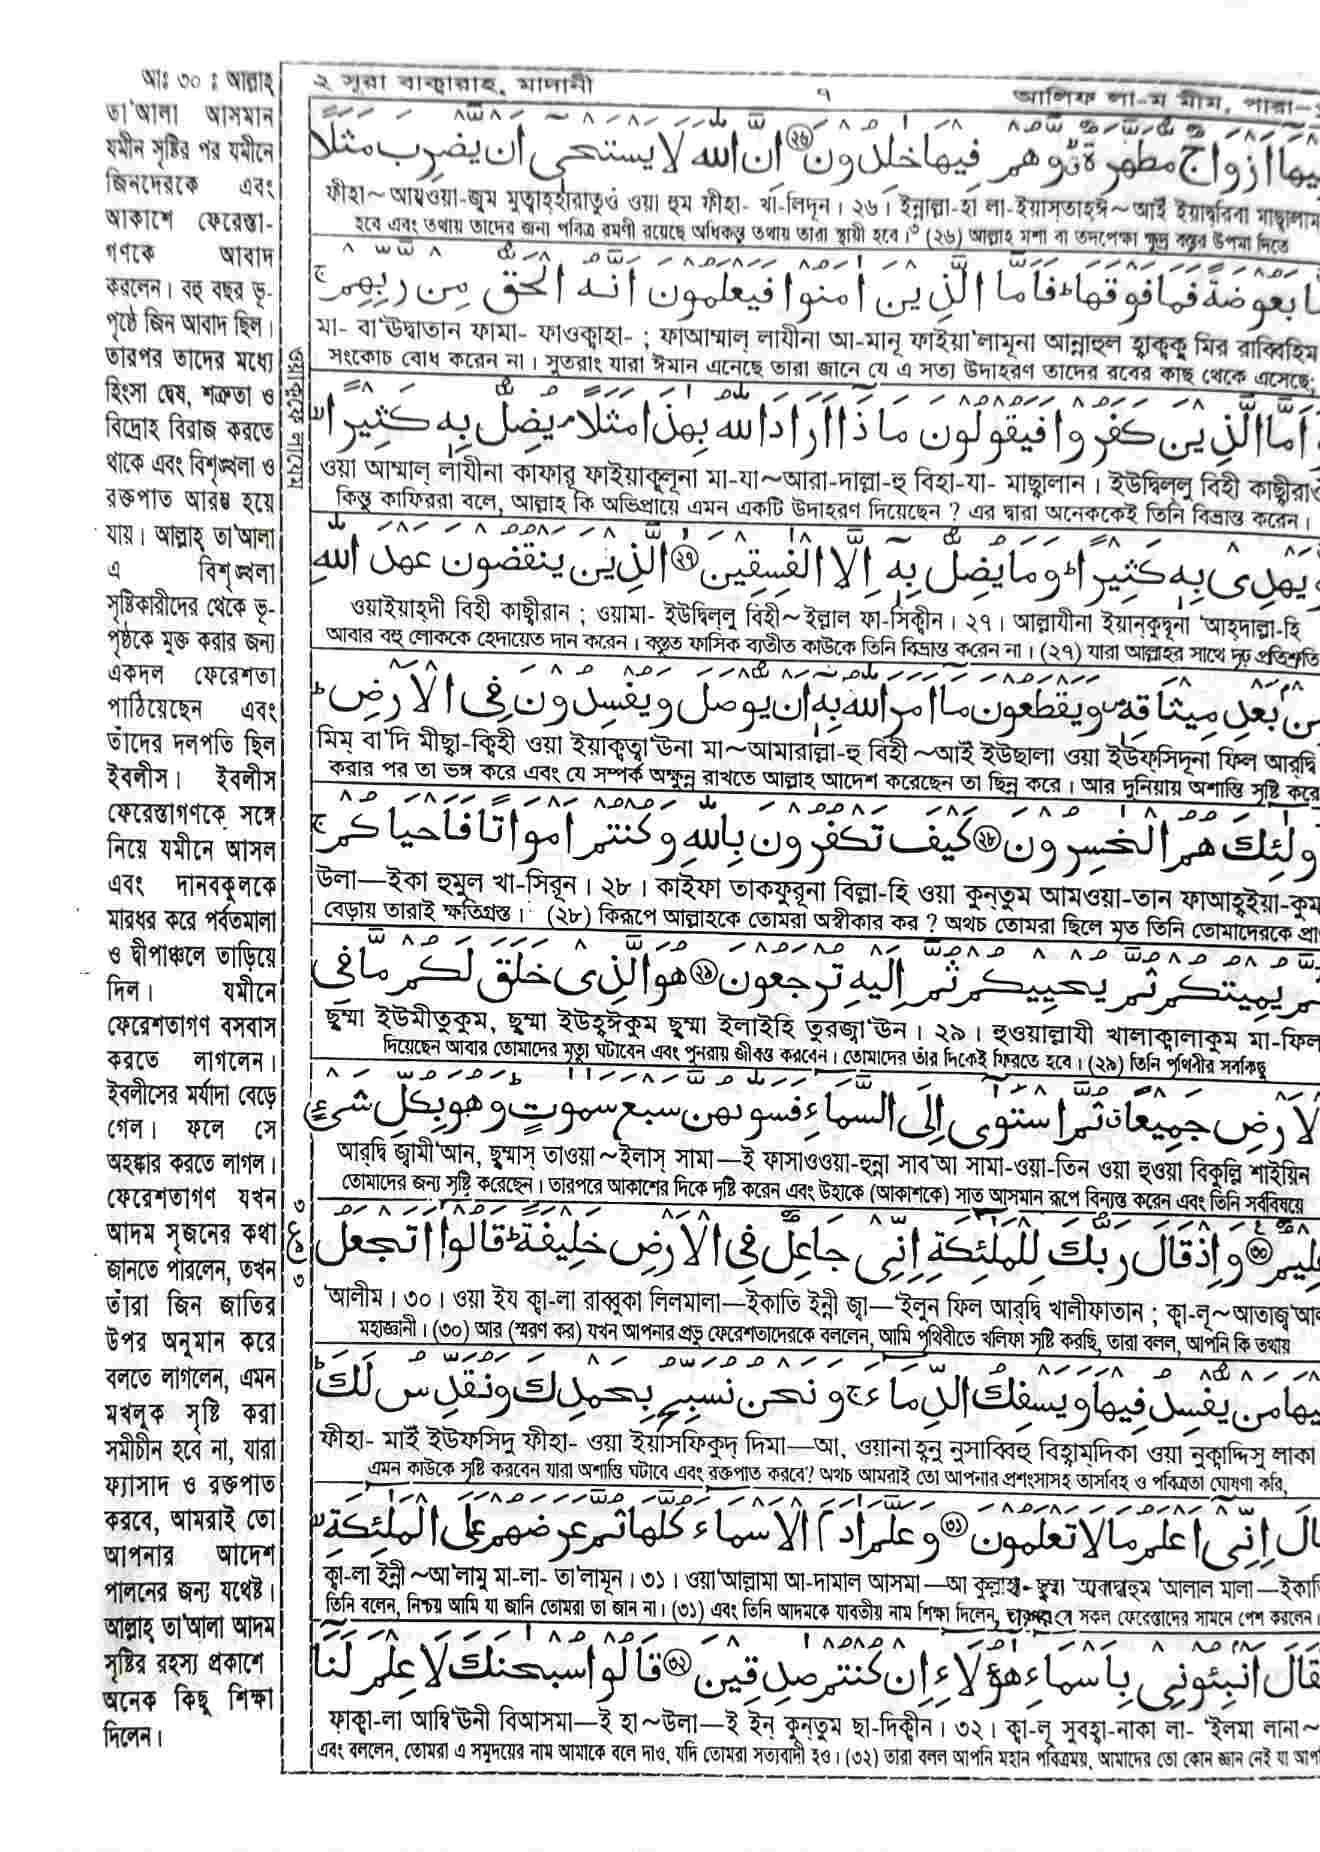 ২ সূরা বাক্বারাহ, মাদানী
৭
আলিফ লা-ম মীম, পারা-
আঃ ৩০ : আল্লাহ্
তা'আলা আসমান
যমীন সৃষ্টির পর যমীনে
জিনদেরকে এবং
আকাশে ফেরেস্তা-
গণকে আবাদ
করলেন। বহু বছর ভূ-
পৃষ্ঠে জিন আবাদ ছিল।
তারপর তাদের মধ্যে
হিংসা দ্বেষ, শত্রুতা ও
বিদ্রোহ বিরাজ করতে
থাকে এবং বিশৃঙ্খলা ও
রক্তপাত আরম্ভ হয়ে
যায়। আল্লাহ্ তা'আলা
এ বিশৃঙ্খলা
সৃষ্টিকারীদের থেকে ভূ-
পৃষ্ঠকে মুক্ত করার জন্য
একদল ফেরেশতা
পাঠিয়েছেন এবং
তাঁদের দলপতি ছিল
ইবলীস। ইবলীস
ফেরেস্তাগণকে সঙ্গে
নিয়ে যমীনে আসল
এবং দানবকুলকে
মারধর করে পর্বতমালা
ও দ্বীপাঞ্চলে তাড়িয়ে
দিল। যমীনে
ফেরেশতাগণ বসবাস
করতে লাগলেন।
ইবলীসের মর্যাদা বেড়ে
গেল। ফলে সে
অহঙ্কার করতে লাগল।
ফেরেশতাগণ যখন
আদম সৃজনের কথা
জানতে পারলেন, তখন
তাঁরা জিন জাতির
উপর অনুমান করে
বলতে লাগলেন, এমন
মখলুক সৃষ্টি করা
সমীচীন হবে না, যারা
ফ্যাসাদ ও রক্তপাত
করবে, আমরাই তো
আপনার আদেশ
পালনের জন্য যথেষ্ট।
আল্লাহ্ তা'আলা আদম
সৃষ্টির রহস্য প্রকাশে
অনেক কিছু শিক্ষা
দিলেন।
ওয়াক্বফে লাযেম
يها ازواج مطهرة وهم فيها خلدون ২৬ ان الله لا يستحى ان يضرب مثلا
ফীহা~ আয্ওয়া-জুম মুত্বাহ্হারাতুওঁ ওয়া হুম ফীহা- খা-লিদূন। ২৬। ইন্নাল্লা-হা লা-ইয়াস্তাহ্ঈ~আইঁ ইয়াদ্বরিবা মাছালাম
হবে এবং তথায় তাদের জন্য পবিত্র রমণী রয়েছে অধিকন্তু তথায় তারা স্থায়ী হবে। (২৬) আল্লাহ মশা বা তদপেক্ষা ক্ষুদ্র বস্তুর উপমা দিতে
ا بعوضة فما فوقها ط فاما الذين امنوا فيعلمون انه الحق من ربهم ج
মা- বা'ঊদ্বাতান ফামা- ফাওক্বাহা- ; ফাআম্মাল্ লাযীনা আ-মানূ ফাইয়া'লামূনা আন্নাহুল হাক্বক্বু মির রাব্বিহিম
সংকোচ বোধ করেন না। সুতরাং যারা ঈমান এনেছে তারা জানে যে এ সত্য উদাহরণ তাদের রবের কাছ থেকে এসেছে;
اما الذين كفروا فيقولون ماذا اراد الله بهذا مثلا م يضل به كثيرا
ওয়া আম্মাল্ লাযীনা কাফারূ ফাইয়াকূলূনা মা-যা~আরা-দাল্লা-হু বিহা-যা- মাছালান। ইউদ্বিল্লু বিহী কাছীরাও
কিন্তু কাফিররা বলে, আল্লাহ কি অভিপ্রায়ে এমন একটি উদাহরণ দিয়েছেন ? এর দ্বারা অনেককেই তিনি বিভ্রান্ত করেন।
ويهدى به كثيرا ط وما يضل به الا الفسقين ২৭ الذين ينقضون عهد الله
ওয়াইয়াহ্দী বিহী কাছীরান ; ওয়ামা- ইউদ্বিল্লু বিহী~ইল্লাল ফা-সিক্বীন। ২৭। আল্লাযীনা ইয়ান্কুদ্বূনা 'আহ্দাল্লা-হি
আবার বহু লোককে হেদায়েত দান করেন। বস্তুত ফাসিক ব্যতীত কাউকে তিনি বিভ্রান্ত করেন না। (২৭) যারা আল্লাহর সাথে দৃঢ় প্রতিশ্রুতি
من بعد ميثاقه ويقطعون ما امر الله به ان يوصل ويفسدون فى الارض ط
মিম্ বা'দি মীছা-ক্বিহী ওয়া ইয়াক্বত্বা'ঊনা মা~আমারাল্লা-হু বিহী~আই ইউছালা ওয়া ইউফ্সিদূনা ফিল আর্দ্বি
করার পর তা ভঙ্গ করে এবং যে সম্পর্ক অক্ষুন্ন রাখতে আল্লাহ আদেশ করেছেন তা ছিন্ন করে। আর দুনিয়ায় অশান্তি সৃষ্টি করে
ولئك هم الخسرون ২৮ كيف تكفرون بالله وكنتم امواتا فاحياكم ج
উলা—ইকা হুমুল খা-সিরূন। ২৮। কাইফা তাকফুরূনা বিল্লা-হি ওয়া কুন্তুম আমওয়া-তান ফাআহ্ইয়া-কুম
বেড়ায় তারাই ক্ষতিগ্রস্ত। (২৮) কিরূপে আল্লাহকে তোমরা অস্বীকার কর ? অথচ তোমরা ছিলে মৃত তিনি তোমাদেরকে প্রা
ثم يميتكم ثم يحييكم ثم اليه ترجعون ২৯ هو الذى خلق لكم ما فى
ছুম্মা ইউমীতুকুম, ছুম্মা ইউহ্ঈকুম ছুম্মা ইলাইহি তুরজ্বা'ঊন। ২৯। হুওয়াল্লাযী খালাক্বালাকুম মা-ফিল
দিয়েছেন আবার তোমাদের মৃত্যু ঘটাবেন এবং পুনরায় জীবন্ত করবেন। তোমাদের তাঁর দিকেই ফিরতে হবে। (২৯) তিনি পৃথিবীর সবকিছু
لارض جميعا ثم استوى الى السماء فسوهن سبع سموت ط وهو بكل شىء
আর্দ্বি জ্বামী'আন, ছুম্মাস্ তাওয়া~ইলাস্ সামা—ই ফাসাওওয়া-হুন্না সাব'আ সামা-ওয়া-তিন ওয়া হুওয়া বিকুল্লি শাইয়িন
তোমাদের জন্য সৃষ্টি করেছেন। তারপরে আকাশের দিকে দৃষ্টি করেন এবং উহাকে (আকাশকে) সাত আসমান রূপে বিন্যস্ত করেন এবং তিনি সর্ববিষয়ে
৩
ع
৩
عليم ৩০ واذ قال ربك للملئكة انى جاعل فى الارض خليفة ط قالوا اتجعل
'আলীম। ৩০। ওয়া ইয ক্বা-লা রাব্বুকা লিলমালা—ইকাতি ইন্নী জ্বা—'ইলুন ফিল আর্দ্বি খালীফাতান ; ক্বা-লূ~আতাজ্ব'আ
মহাজ্ঞানী। (৩০) আর (স্মরণ কর) যখন আপনার প্রভু ফেরেশতাদেরকে বললেন, আমি পৃথিবীতে খলিফা সৃষ্টি করছি, তারা বলল, আপনি কি তথায়
يها من يفسد فيها ويسفك الدماء ج ونحن نسبح بحمدك ونقدس لك ط
ফীহা- মাইঁ ইউফসিদু ফীহা- ওয়া ইয়াসফিকুদ্ দিমা—আ, ওয়ানাহ্নু নুসাব্বিহু বিহাম্দিকা ওয়া নুক্বাদ্দিসু লাকা
এমন কাউকে সৃষ্টি করবেন যারা অশান্তি ঘটাবে এবং রক্তপাত করবে? অথচ আমরাই তো আপনার প্রশংসাসহ তাসবিহ ও পবিত্রতা ঘোষণা করি,
قال انى اعلم ما لا تعلمون ৩১ وعلم ادم الاسماء كلها ثم عرضهم على الملئكة
ক্বা-লা ইন্নী~আ'লামু মা-লা- তা'লামূন। ৩১। ওয়া'আল্লামা আ-দামাল আসমা—আ কুল্লাহা- ছুম্মা 'আরাদ্বাহুম 'আলাল মালা—ইকাতি
তিনি বলেন, নিশ্চয় আমি যা জানি তোমরা তা জান না। (৩১) এবং তিনি আদমকে যাবতীয় নাম শিক্ষা দিলেন, সকল ফেরেস্তাদের সামনে পেশ করলেন।
فقال انبئونى باسماء هؤلاء ان كنتم صدقين ৩২ قالوا سبحنك لا علم لنا
ফাক্বা-লা আম্বিঊনী বিআসমা—ই হা~উলা—ই ইন্ কুন্তুম ছা-দিক্বীন। ৩২। ক্বা-লূ সুবহা-নাকা লা- 'ইলমা লানা~
এবং বললেন, তোমরা এ সমুদয়ের নাম আমাকে বলে দাও, যদি তোমরা সত্যবাদী হও। (৩২) তারা বলল আপনি মহান পবিত্রময়, আমাদের তো কোন জ্ঞান নেই যা আপ